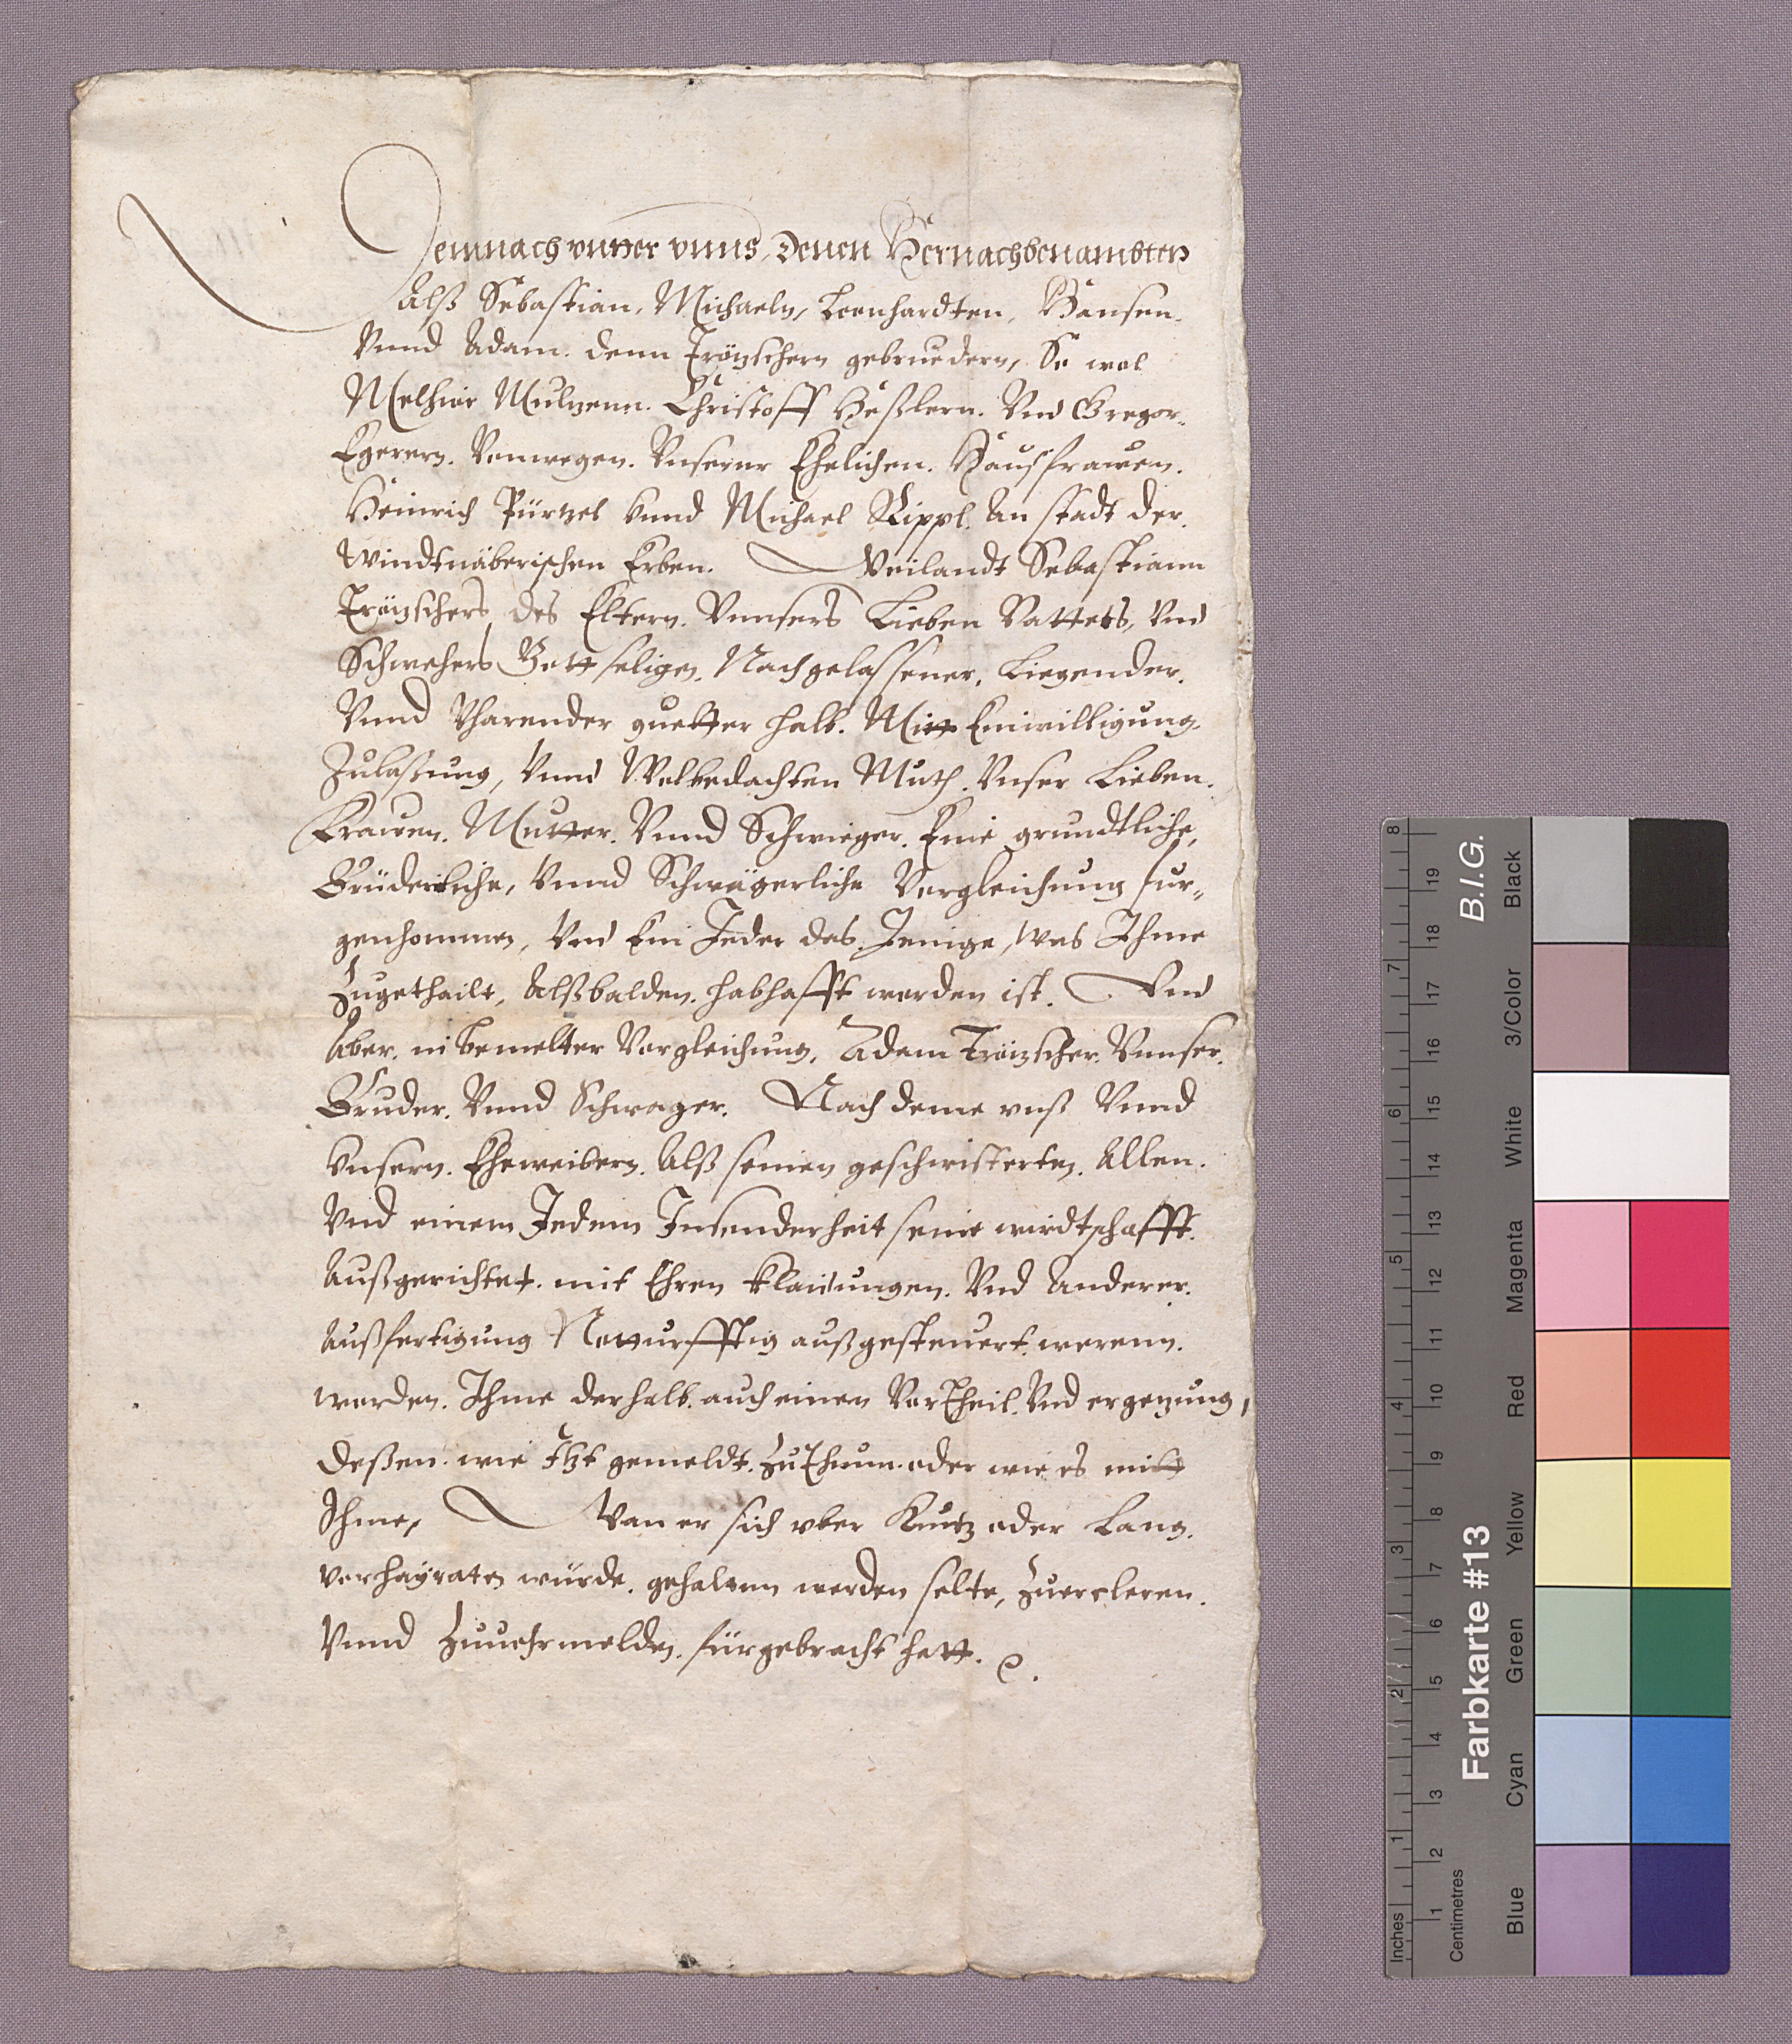 Demnach vntter vnns, denen Hernachbenambten
Alß Sebastian, Michaeln, Leonhardten, Hansen.
Vnnd Adam. denn Trötzschern gebruedern, So wol
Melhior Mulzenn. Christoff Heßlern. Vnd Gregor.
Egerern. Vonwegen. Vnserer Ehelichen. Hausfrawen.
Heinrich Pürtzel vnnd Michael Rippl. An stadt der.
Windtnäberischen Erben. Weilandt Sebastiann
Trötzschers des Eltern. Vnnsers Lieben Vatters, Vnd
Schwehers Gottseligen. Nachgelassener. Liegender.
Vnnd Vharender guetter halb. Mitt Einwilligung.
Zulaßung, Vnnd Wolbedachten Muth. Vnser Lieben.
Frawen. Mutter. Vnnd Schwieger. Eine grundtliche,
Brüderliche, Vnnd Schwägerliche Vergleichung fur„
genhommen, Vnd Ein Jeder das Jenige, Was Ihme
Zugetheilt, Alßbalden. habhafft worden ist. Vnd
Aber. in bemelter Vergleichung, Adam Trötzscher. Vnnser.
Bruder. Vnnd Schwager. Nach deme vnß Vnnd
Vnsern. Eheweibern. Alß seinen geschwisterten. Allen.
Vnd einem Jedem Insonderheit seine wirdtschafft.
Außgerichtet. mit Ehren klaidungen. Vnd Anderer.
Außfertigung Notturfftig außgesteuert. worenn.
worden. Ihme derhalb. auch einen VorTheil. Vnd ergetzung,
deßen. wie Itzt gemeldt. ZuThunn. oder wie es mitt
Ihme, Wan er sich vber Kurtz oder Lang.
verhayraten würde. gehaltenn werden solte, Zuercleren.
Vnnd Zuuermelden. fürgebracht hatt.